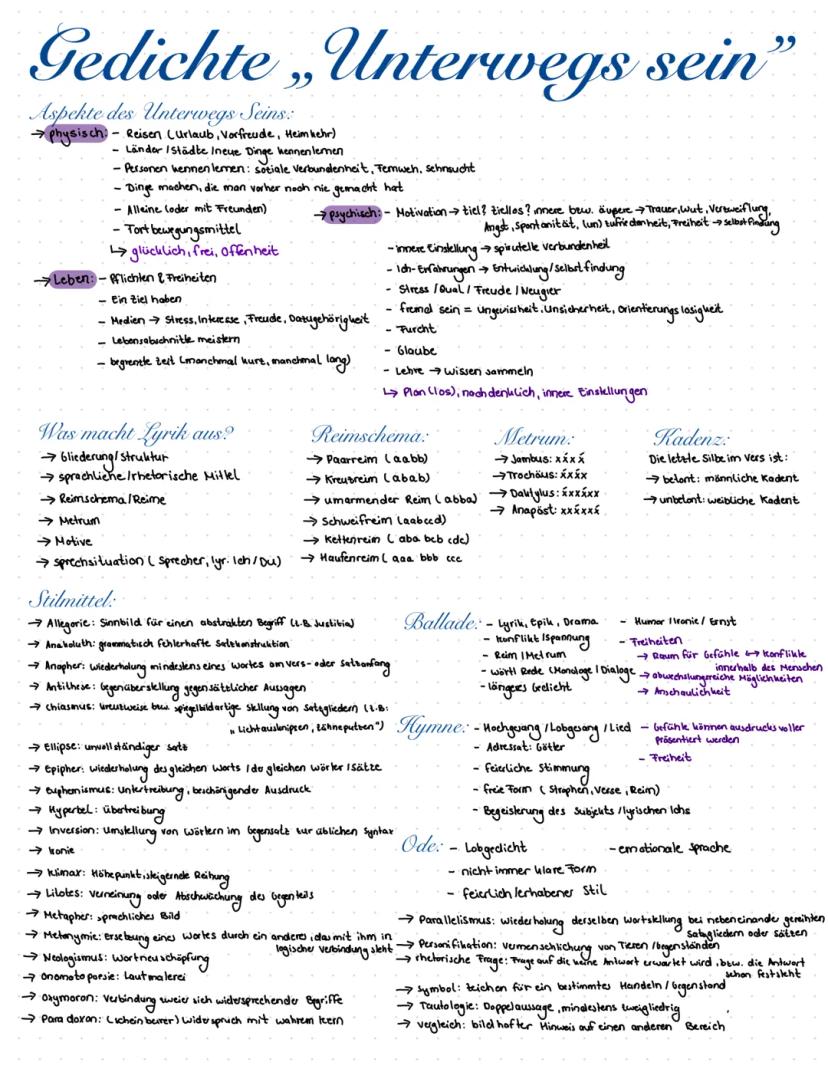 Gedichte „Unterwegs sein”
Aspekte des Unterwegs Seins:
→ physisch: – Reisen (Urlaub, Vorfreude, Heimkehr)
– Länder / Städte / neue Dinge kennenlernen
– Personen kennenlernen: soziale Verbundenheit, Fernweh, Sehnsucht
– Dinge machen, die man vorher noch nie gemacht hat
– Alleine (oder mit Freunden)
– Fortbewegungsmittel
↳ glücklich, frei, Offenheit
→ Leben: – Pflichten & Freiheiten
– Ein Ziel haben
– Medien → Stress, Interesse, Freude, Dazugehörigkeit
– Lebensabschnitte meistern
– begrenzte Zeit (manchmal kurz, manchmal lang)
→ psychisch: – Motivation → Ziel? Ziellos? innere bzw. äußere → Trauer, Wut, Verzweiflung,
Angst, Spontanität, (un) zufriedenheit, Freiheit → selbstfindung
– innere Einstellung → spirutelle Verbundenheit
– Ich-Erfahrungen → Entwicklung / Selbstfindung
– Stress / Qual / Freude / Neugier
– fremd sein = Ungewissheit, Unsicherheit, Orientierungslosigkeit
– Furcht
– Glaube
– Lehre → Wissen sammeln
↳ Plan (los), nachdenklich, innere Einstellungen
Was macht Lyrik aus?
→ Gliederung / Struktur
→ sprachliche / rhetorische Mittel
→ Reimschema / Reime
→ Metrum
→ Motive
→ sprechsituation ( Sprecher, lyr. Ich / Du)
Reimschema:
→ Paarreim ( aabb)
→ Kreuzreim ( abab)
→ umarmender Reim ( abba)
→ Schweifreim ( aabccd)
→ Kettenreim ( aba bcb cdc)
→ Haufenreim ( aaa bbb ccc
Metrum:
→ Jambus: xx́xx́
→ Trochäus: x́xx́x
→ Daktylus: x́xxx́xx
→ Anapöst: xxx́xxx́
Kadenz:
Die letzte Silbe im Vers ist:
→ betont: männliche Kadent
→ unbetont: weibliche Kadent
Stilmittel:
→ Allegorie: Sinnbild für einen abstrakten Begriff (z.B. Justitia)
→ Anakoluth: grammatisch fehlerhafte Satzkonstruktion
→ Anapher: Wiederholung mindestens eines Wortes am Vers- oder Satzanfang
→ Antithese: Gegenüberstellung gegensätzlicher Aussagen
→ Chiasmus: kreuzweise bzw. spiegelbildartige Stellung von Satzgliedern (z.B:
„ Licht ausknipsen, Zähneputzen")
→ Ellipse: unvollständiger Satz
→ Epipher: Wiederholung des gleichen Worts / der gleichen Wörter / Sätze
→ Euphemismus: Untertreibung, beschönigender Ausdruck
→ Hyperbel: Übertreibung
→ Inversion: Umstellung von Wörtern im Gegensatz zur üblichen Syntax
→ Ironie
→ Klimax: Höhepunkt, steigernde Reihung
→ Litotes: Verneinung oder Abschwächung des Gegenteils
→ Metapher: sprachliches Bild
→ Metonymie: Ersetzung eines Wortes durch ein anderes, das mit ihm in
logischer Verbindung steht
→ Neologismus: Wortneuschöpfung
→ Onomatopoesie: Lautmalerei
→ Oxymoron: Verbindung zweier sich widersprechender Begriffe
→ Paradoxon: (scheinbarer) Widerspruch mit wahrem Kern
Ballade: – Lyrik, Epik, Drama
– Konflikt / Spannung
– Reim / Metrum
– wörtl Rede (Monologe / Dialoge
– längeres Gedicht
– Humor / Ironie / Ernst
– Freiheiten
→ Raum für Gefühle ↔ Konflikte
innerhalb des Menschen
→ abwechslungsreiche Möglichkeiten
→ Anschaulichkeit
Hymne: – Hochgesang / Lobgesang / Lied
– Adressat: Götter
– feierliche Stimmung
– freie Form ( Strophen, Verse, Reim)
– Begeisterung des Subjekts / lyrischen Ichs
– Gefühle können ausdrucksvoller
präsentiert werden
– Freiheit
Ode: – Lobgedicht
– nicht immer klare Form
– feierlich / erhabener Stil
– emotionale Sprache
→ Parallelismus: Wiederholung derselben Wortstellung bei nebeneinander gereihten
Satzgliedern oder Sätzen
→ Personifikation: Vermenschlichung von Tieren / Gegenständen
→ rhetorische Frage: Frage auf die keine Antwort erwartet wird, bzw. die Antwort
schon feststeht
→ Symbol: Zeichen für ein bestimmtes Handeln / Gegenstand
→ Tautologie: Doppelaussage, mindestens zweigliedrig
→ Vergleich: bildhafter Hinweis auf einen anderen Bereich